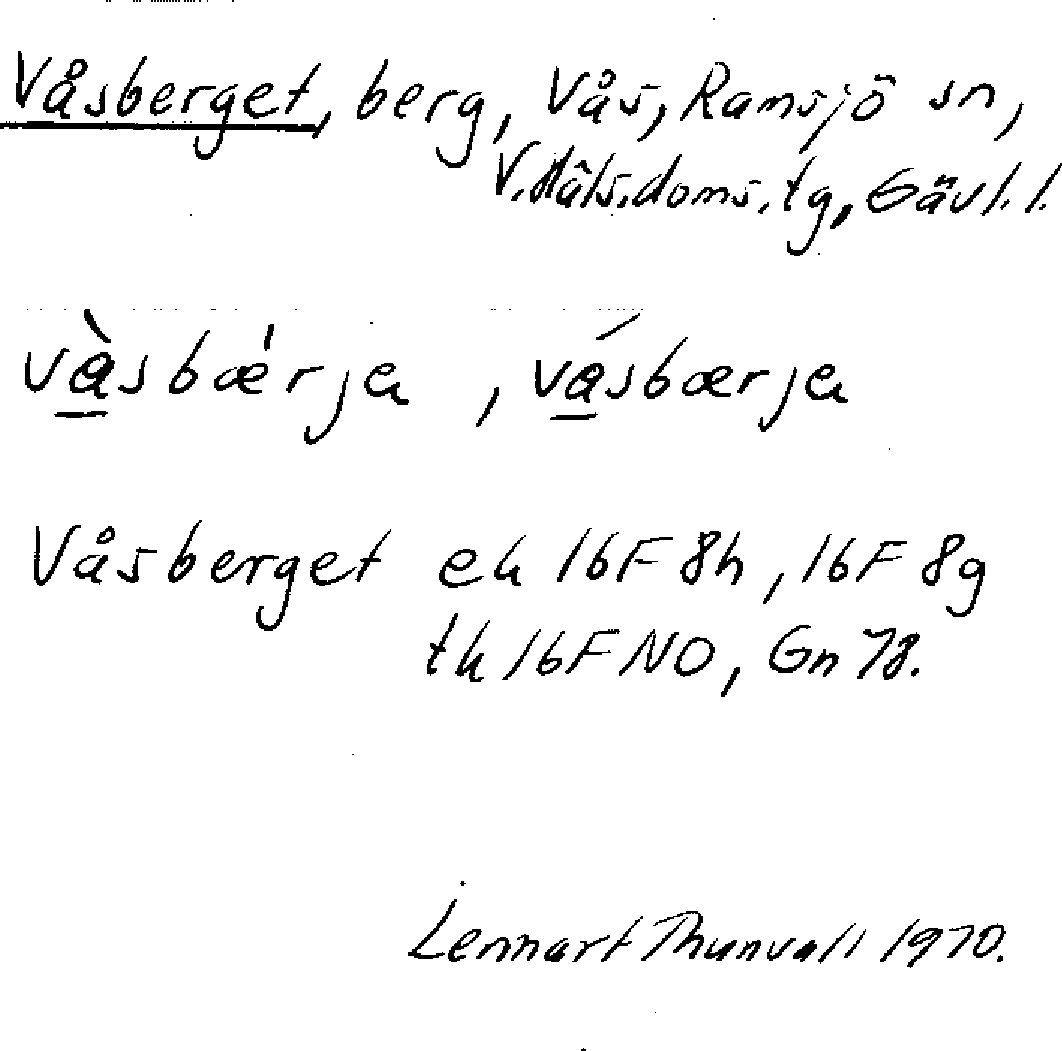 Våsberget, berg, Vås, Ramsjö sn,
V. Häls. doms. tg, Gävl. l.
và̱sbǽrja , vá̱sbærja
Våsberget ek 16F 8h, 16F 8g
tk 16F NO, Gn 78.
Lennart Thunvall 1970.